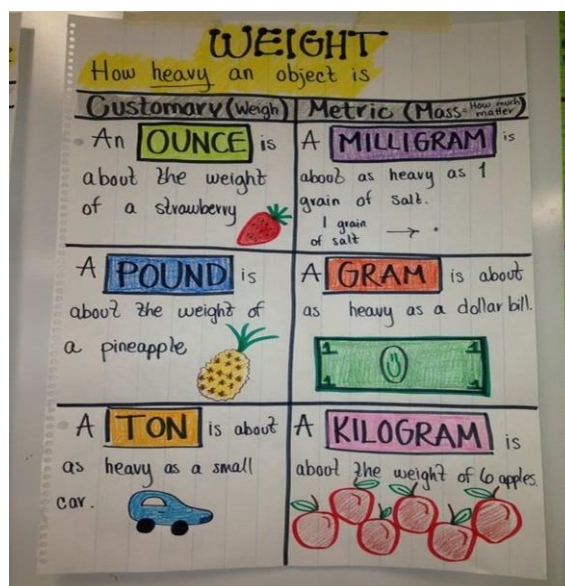 WEIGHT
How heavy an object is
Customary (Weigh)
Metric (Mass = How much matter)
An OUNCE is
about the weight
of a strawberry
A MILLIGRAM is
about as heavy as 1
grain of salt.
1 grain
of salt
A POUND is
about the weight of
a pineapple
A GRAM is about
as heavy as a dollar bill.
1 1
1 1
A TON is about
as heavy as a small
car.
A KILOGRAM is
about the weight of 6 apples.